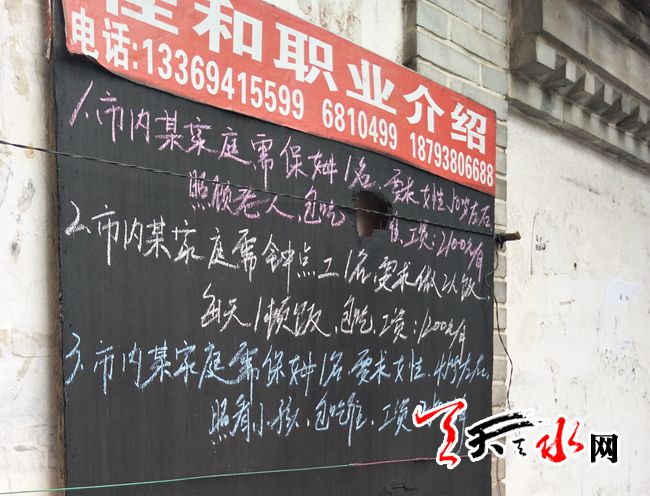 和职业介绍
电话:13369415599 6810499 18793806688
1.市内某家庭需保姆1名,要求女性,50岁左右
照顾老人,包吃 住,工资:2100元/月
2.市内某家庭需钟点工1名,要求做2人饭、
每天1顿饭,包吃,工资:1200元/月
3.市内某家庭需保姆1名,要求女性,45岁左右,
照看小孩,包吃住,工资
天天天水网